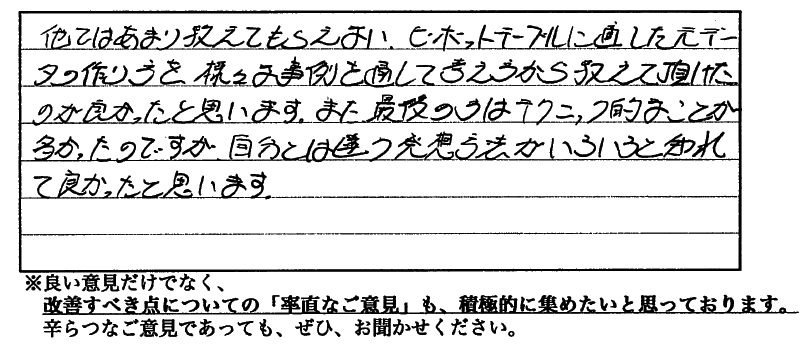 他ではあまり教えてもらえない、ピボットテーブルに適した元デー
タの作り方を様々な事例を通して考え方から教えて頂けた
のが良かったと思います。また最後の方はテクニック的なことが
多かったのですが、自分とは違う発想方法がいろいろと知れ
て良かったと思います。
※良い意見だけでなく、
改善すべき点についての「率直なご意見」も、積極的に集めたいと思っております。
辛らつなご意見であっても、ぜひ、お聞かせください。